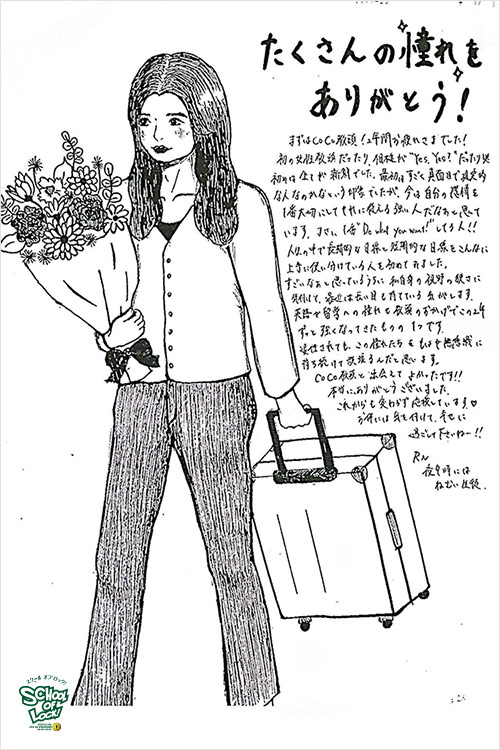 たくさんの憧れを
ありがとう!
まずはCoCo教頭!2年間お疲れさまでした!
初の女性教頭だったり、価値が"Yes, No?"だったり
初めは全てが新鮮でした。最初はすごく真面目で
な人なのかなという印象でしたが、今は自分の気持を
1番大切にしてそれに従える強い人だなぁと思って
います。まさに、1番"Do what you want!"してる人!!
人生の中で長期的な目線と短期的な目線をこんなに
上手に使い付けている人を初めてみました。
すごいなぁと思っているうちに私自身の視野の狭さに
気付けて、最近は長い目も育ている気がします。
英語や留学への憧れも教頭のおかげでこの2年
ずっと強くなってきたものの1つです。
卒業されても、この憧れたちを私は
持ち続けて頑張るんだと思います。
CoCo教頭と出会えてよかったです!!
本当にありがとうございました。
これからも変わらず応援しています♡
お体には気を付けて、幸せに
過ごして下さいねー!!
RN
夜9時には
ねむい生徒
スクール オブ ロック!
SCHOOL
OF
LOCK!